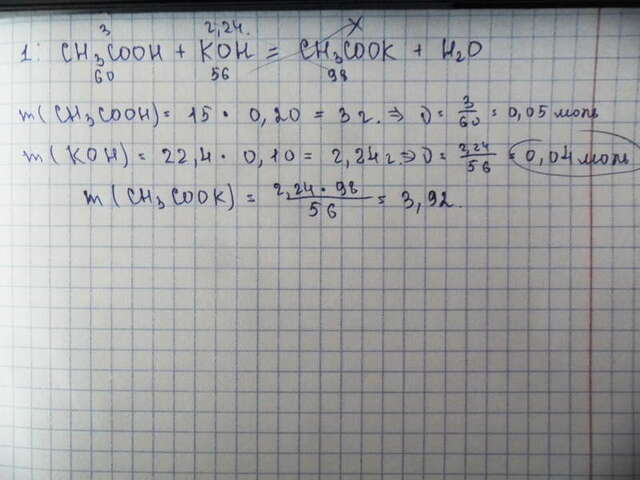 3 2,24. x
1: CH₃COOH + KOH = CH₃COOK + H₂O
60 56 98
m(CH₃COOH) = 15 · 0,20 = 3 г. ⇒ ν = 3/60 = 0,05 моль
m(KOH) = 22,4 · 0,10 = 2,24 г ⇒ ν = 2,24/56 = 0,04 моль
m(CH₃COOK) = 2,24 · 98/56 = 3,92.